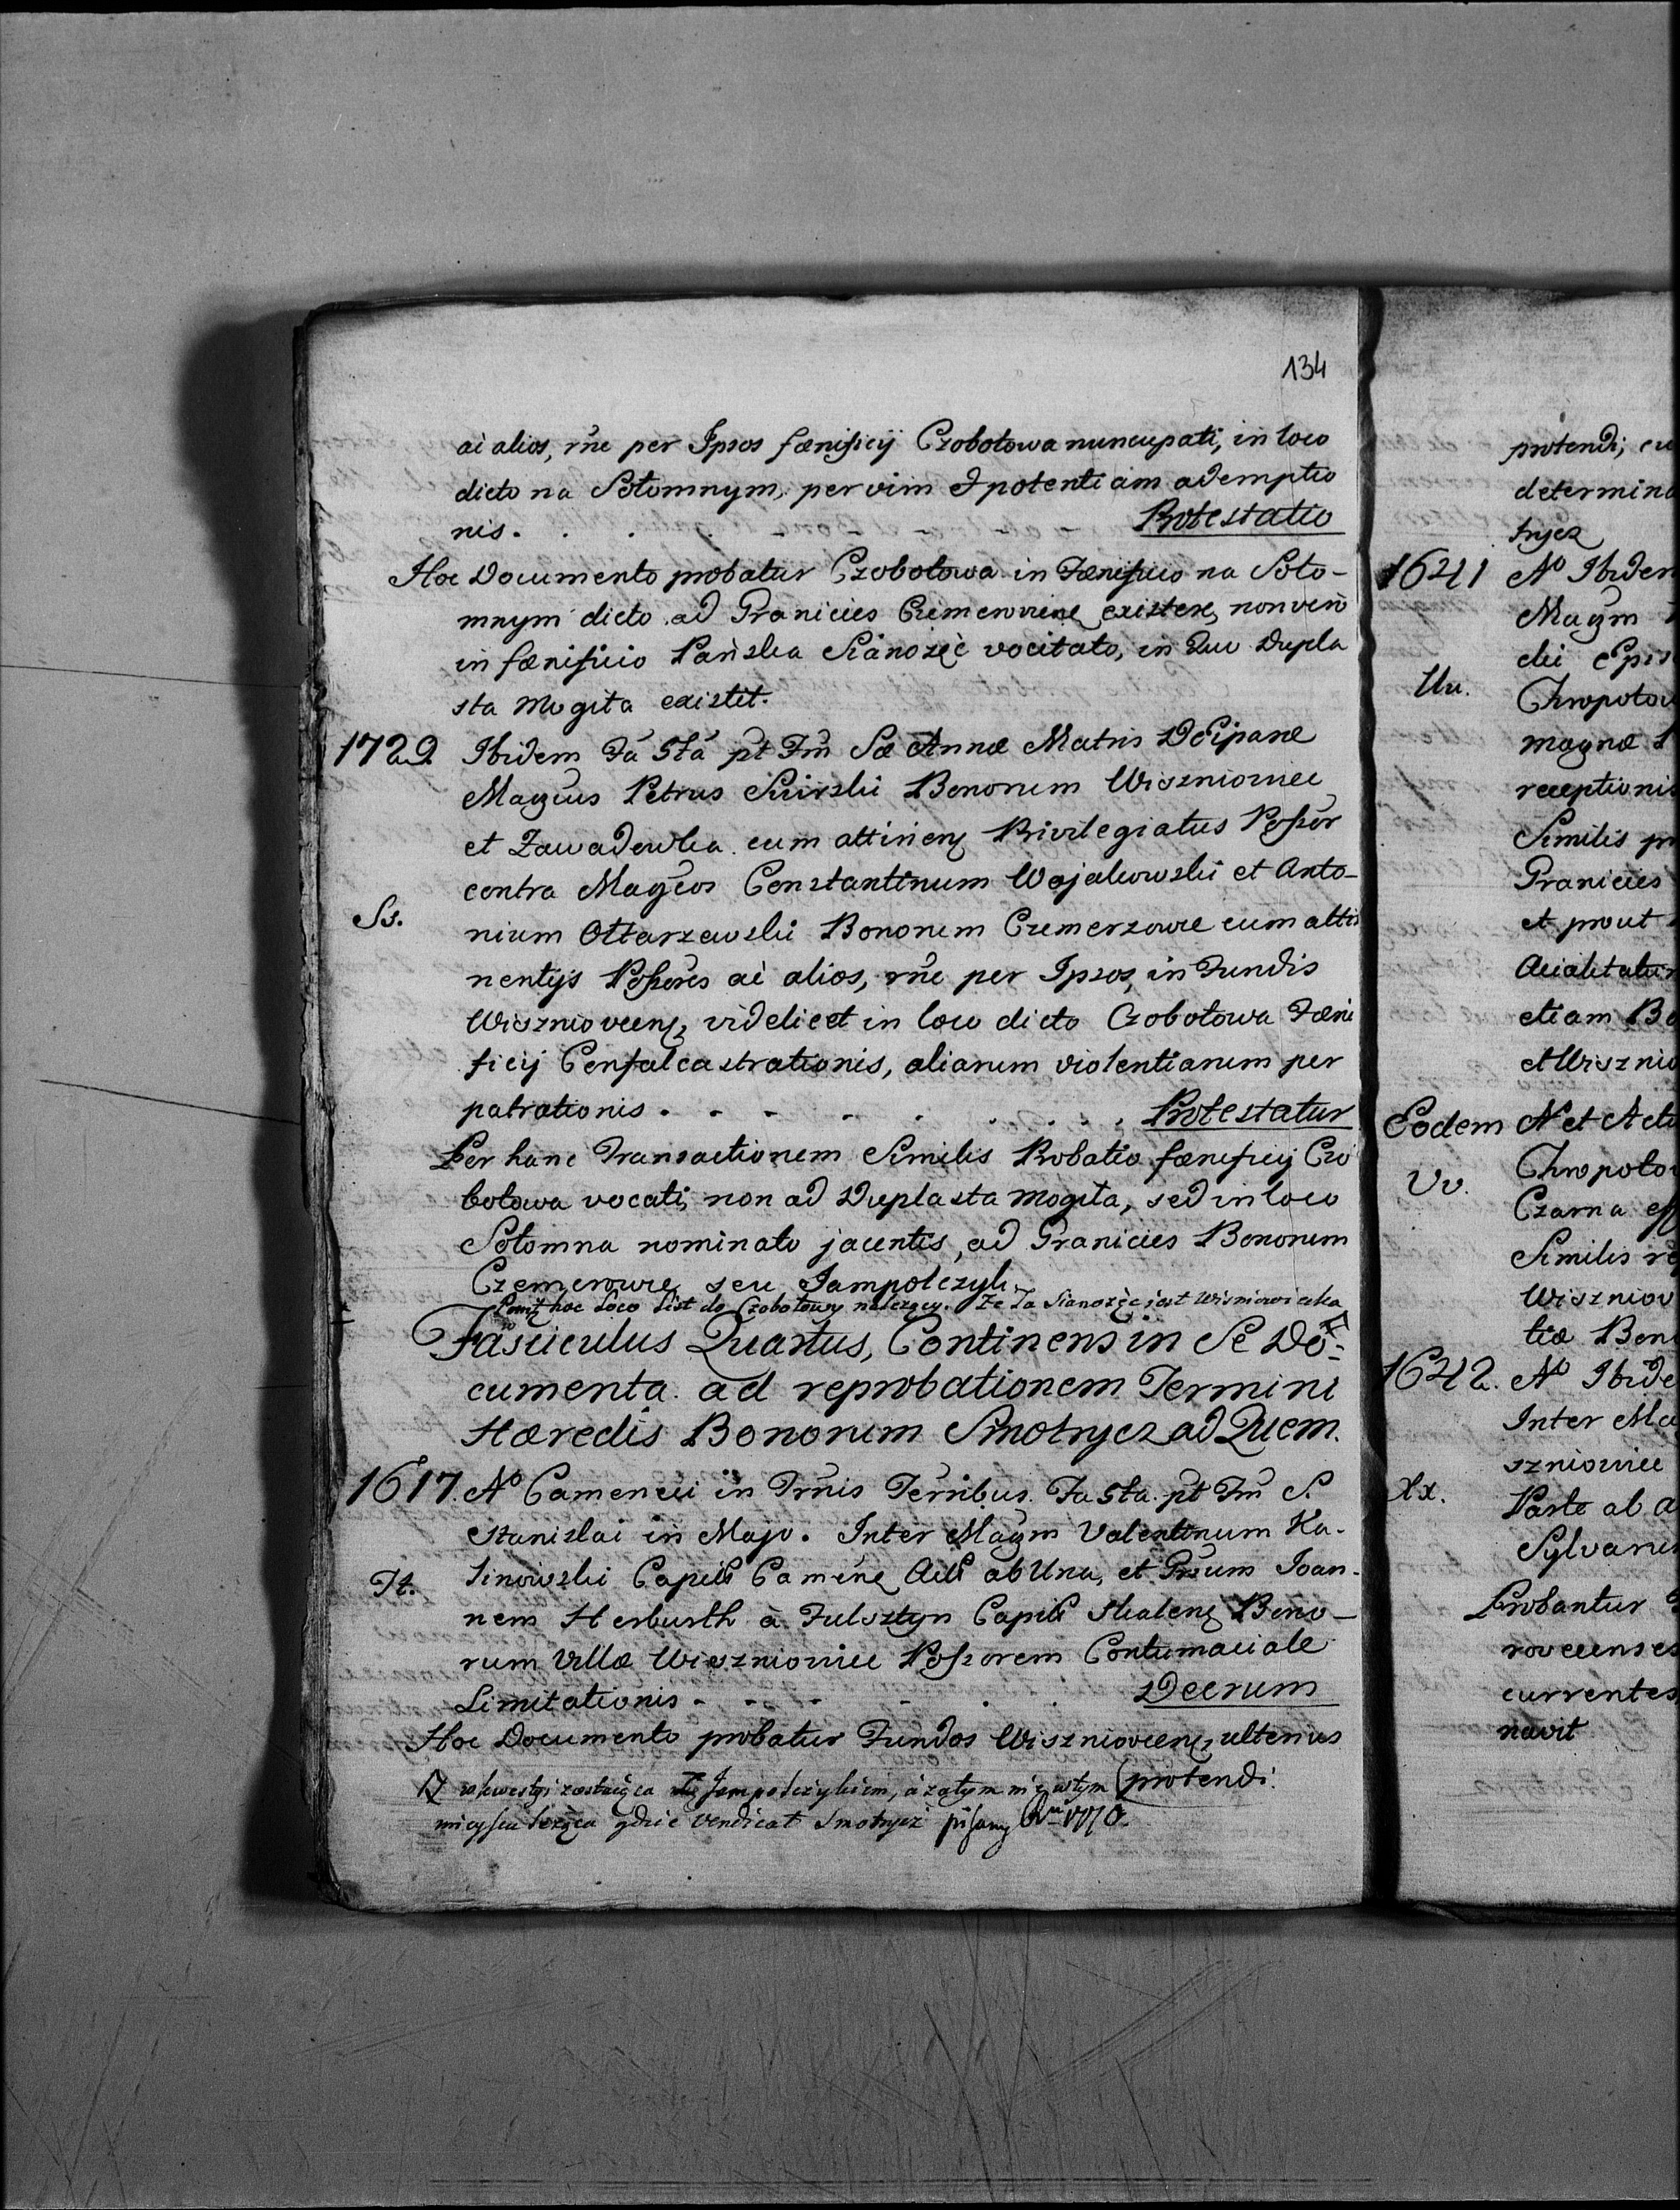 134
ai alios, rne per Ipsos fænificij Czobotowa nuncupati, in loco
dicto na Sołomnym, per vim et potentiam ademptio
nis. Protestatio
Hoc Documento probatur Czobotowa in Fænificio na Soło-
mnym dicto ad Granicies Czemerowiens existere, non vero
in fænificio Pańska Sianożęć vocitato, in quo Dupla
sta Mogiła existit.
1729 Ibidem Fa 5ta pt Fm Sæ Annæ Matris Deiparæ
Magcus Petrus Swirski Bonorum Wiszniowiec
et Zawadowka cum attinens Privilegiatus Possor
contra Magcos Constantinum Wojakowski et Anto-
Ss. nium Ołtarzewski Bonorum Czemerzowce cum atti
nentijs Possores ai alios, rne per Ipsos, in Fundis
Wiszniovcens, videlicet in loco dicto Czobotowa Fæni
ficij Confalcastrationis, aliarum violentiarum per
patrationis. Protestatur
Per hanc Transactionem Similis Probatio fænificij Czo
botowa vocati, non ad Duplasta Mogiła, sed in loco
Sołomna nominato jacentis, ad Granicies Bonorum
Czemerowce, seu Jampolczyk.
hoc Loco List do Czobotowy należący. Że Ta Sianożęć jest Wisniowiecka
Fasciculus Quartus, Continens in Se Do-
cumenta ad reprobationem Termini
Hæredis Bonorum Smotrycz ad Quem.
1617. Ao Camenecii in Trnis Terribus Fa 5ta pt Fm S.
Stanislai in Majo. Inter Magm Valentinum Ka-
Tt. linowski Capit Camene Act ab Una, et Gsum Joan-
nem Herburth à Fulsztyn Capit Skalens Bono-
rum Villæ Wiszniowiec Possorem Contumaciale
Limitationis. Decrum
Hoc Documento probatur Fundos Wiszniovcens, ulterius
w kwestyi zostaiąca z Jampolczykiem, a zatym nie w tym (protendi.
mieyscu leżąca gdzie vendicat Smotrycz pisany 1770.
protendi; cu
determina
trycz
1641 Ao Ibidem
Magm
cki Epis
Uu. Chropotow
magnæ
receptionis
Similis pr
Granicies
et prout
Acialitatur
etiam Bo
et Wisznio
Eodem Ao et Actu
Vv. Chropotow
Czarna
Similis
Wiszniov
tiæ Bon
1642. Ao Ibide
Inter Ma
szniowiec
Xx. Parte ab a
Sylvarum
Probantur
rovcenses
currentes
navit